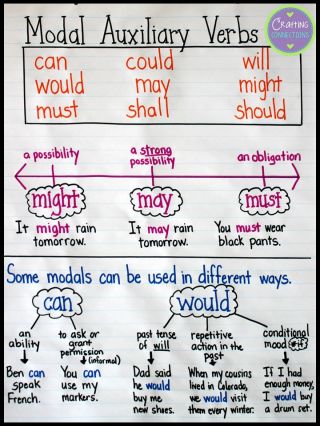 Crafting
Connections
Modal Auxiliary Verbs
can could will
would may might
must shall should
a possibility
a strong
possibility
an obligation
might may must
It might rain
tomorrow.
It may rain
tomorrow.
You must wear
black pants.
Some modals can be used in different ways.
can
an
ability
Ben can
speak
French.
to ask or
grant
permission
(informal)
You can
use my
markers.
would
past tense
of will
Dad said
he would
buy me
new shoes.
repetitive
action in the
past
When my cousins
lived in Colorado,
we would visit
them every winter.
conditional
mood (if)
If I had
enough money,
I would buy
a drum set.